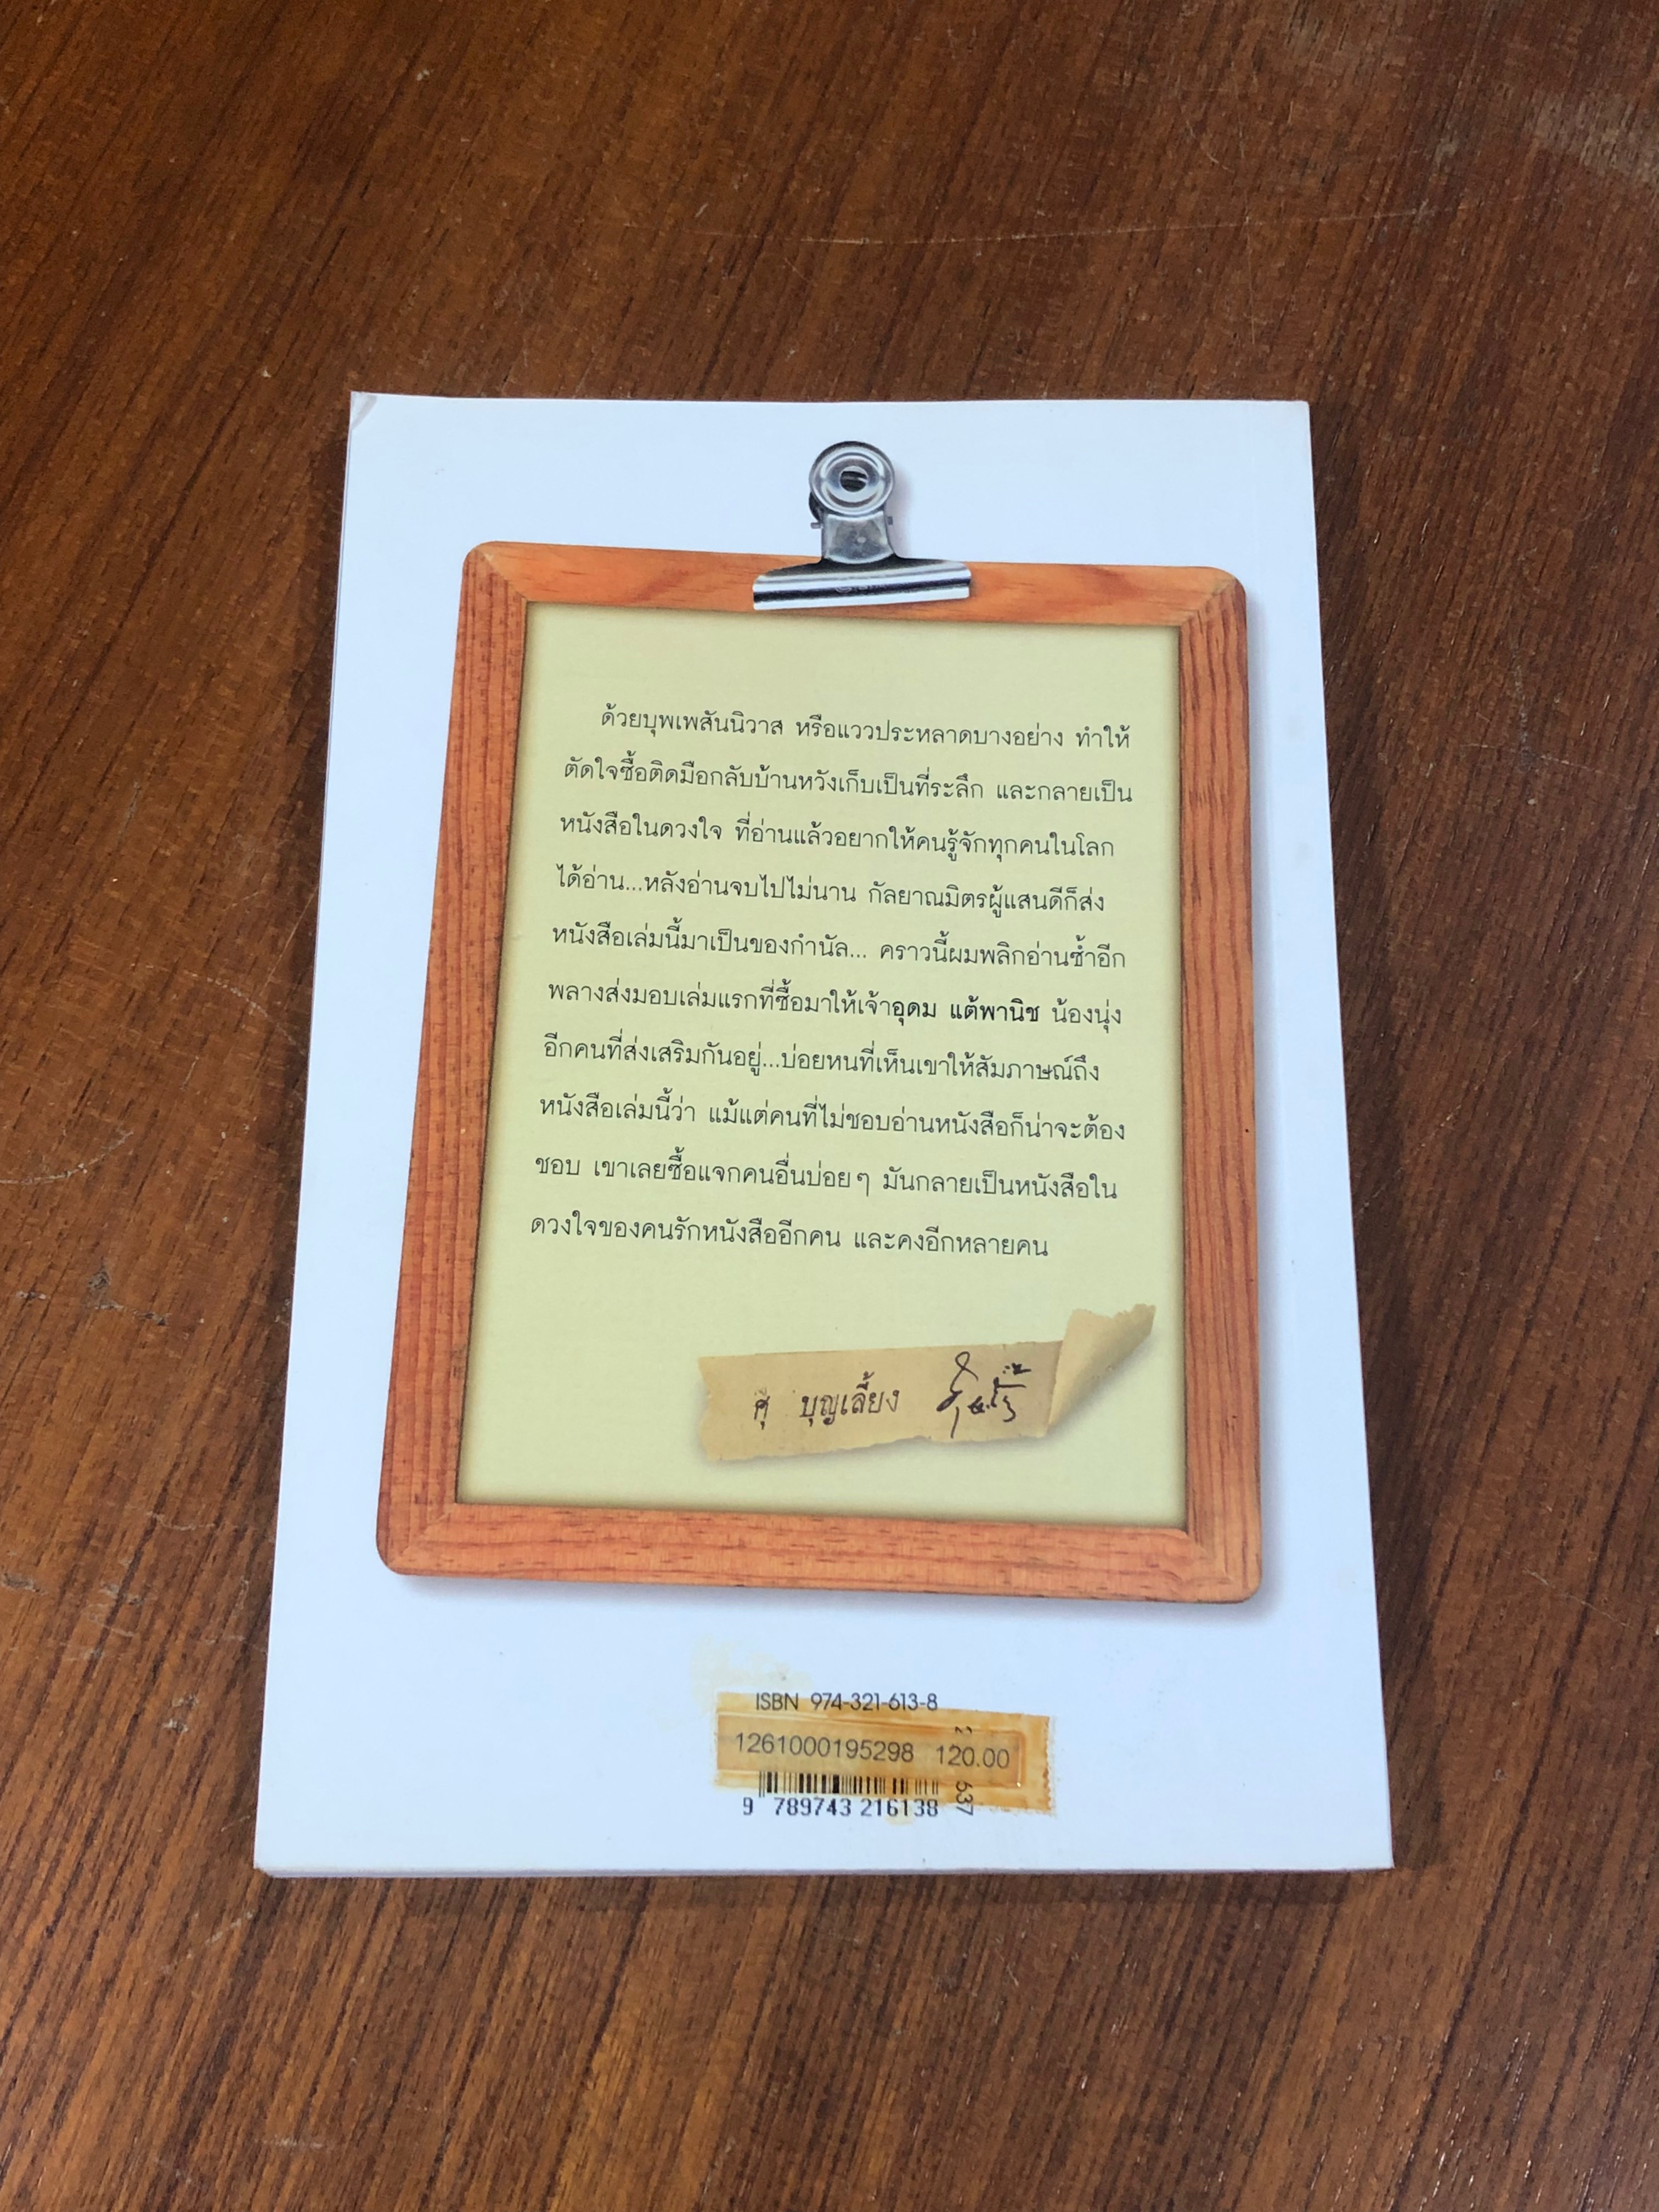 ด้วยบุพเพสันนิวาส หรือแววประหลาดบางอย่าง ทำให้
ตัดใจซื้อติดมือกลับบ้านหวังเก็บเป็นที่ระลึก และกลายเป็น
หนังสือในดวงใจ ที่อ่านแล้วอยากให้คนรู้จักทุกคนในโลก
ได้อ่าน...หลังอ่านจบไปไม่นาน กัลยาณมิตรผู้แสนดีก็ส่ง
หนังสือเล่มนี้มาเป็นของกำนัล... คราวนี้ผมพลิกอ่านซ้ำอีก
พลางส่งมอบเล่มแรกที่ซื้อมาให้เจ้าอุดม แต้พานิช น้องนุ่ง
อีกคนที่ส่งเสริมกันอยู่...บ่อยหนที่เห็นเขาให้สัมภาษณ์ถึง
หนังสือเล่มนี้ว่า แม้แต่คนที่ไม่ชอบอ่านหนังสือก็น่าจะต้อง
ชอบ เขาเลยซื้อแจกคนอื่นบ่อยๆ มันกลายเป็นหนังสือใน
ดวงใจของคนรักหนังสืออีกคน และคงอีกหลายคน
ศุ บุญเลี้ยง
ISBN 974-321-613-8
1261000195298 120.00
9 789743 216138